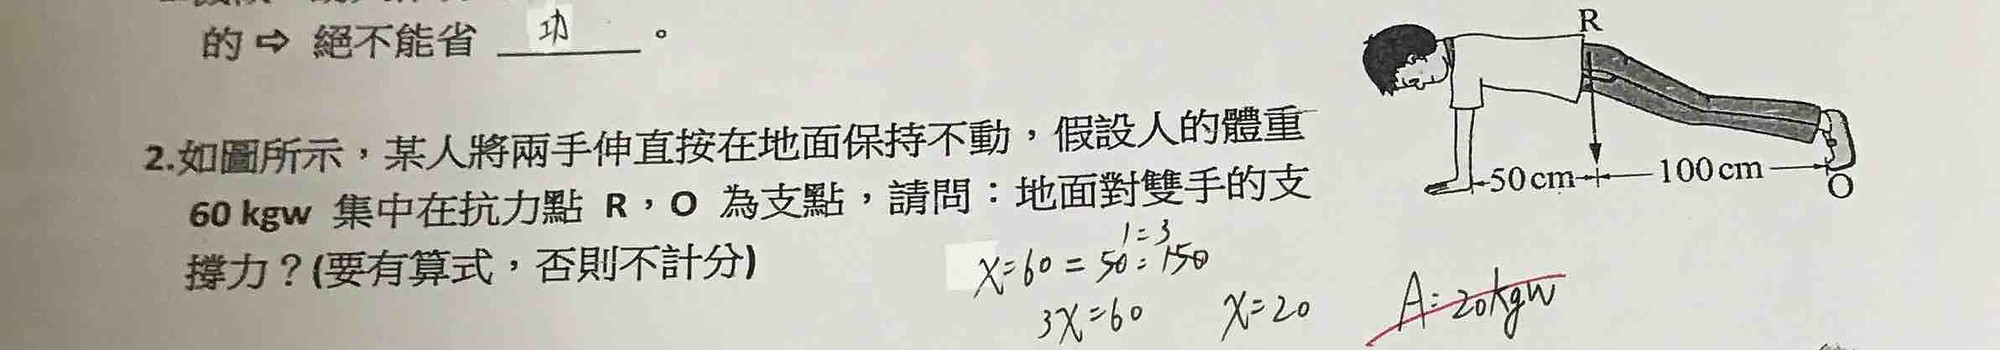 的⇨ 絕不能省 功 。
2.如圖所示，某人將兩手伸直按在地面保持不動，假設人的體重
60 kgw 集中在抗力點 R，O 為支點，請問：地面對雙手的支
撐力？(要有算式，否則不計分)
R
50cm
100cm
O
1:3
x:60=50:150
3x=60 x=20
A:20kgw